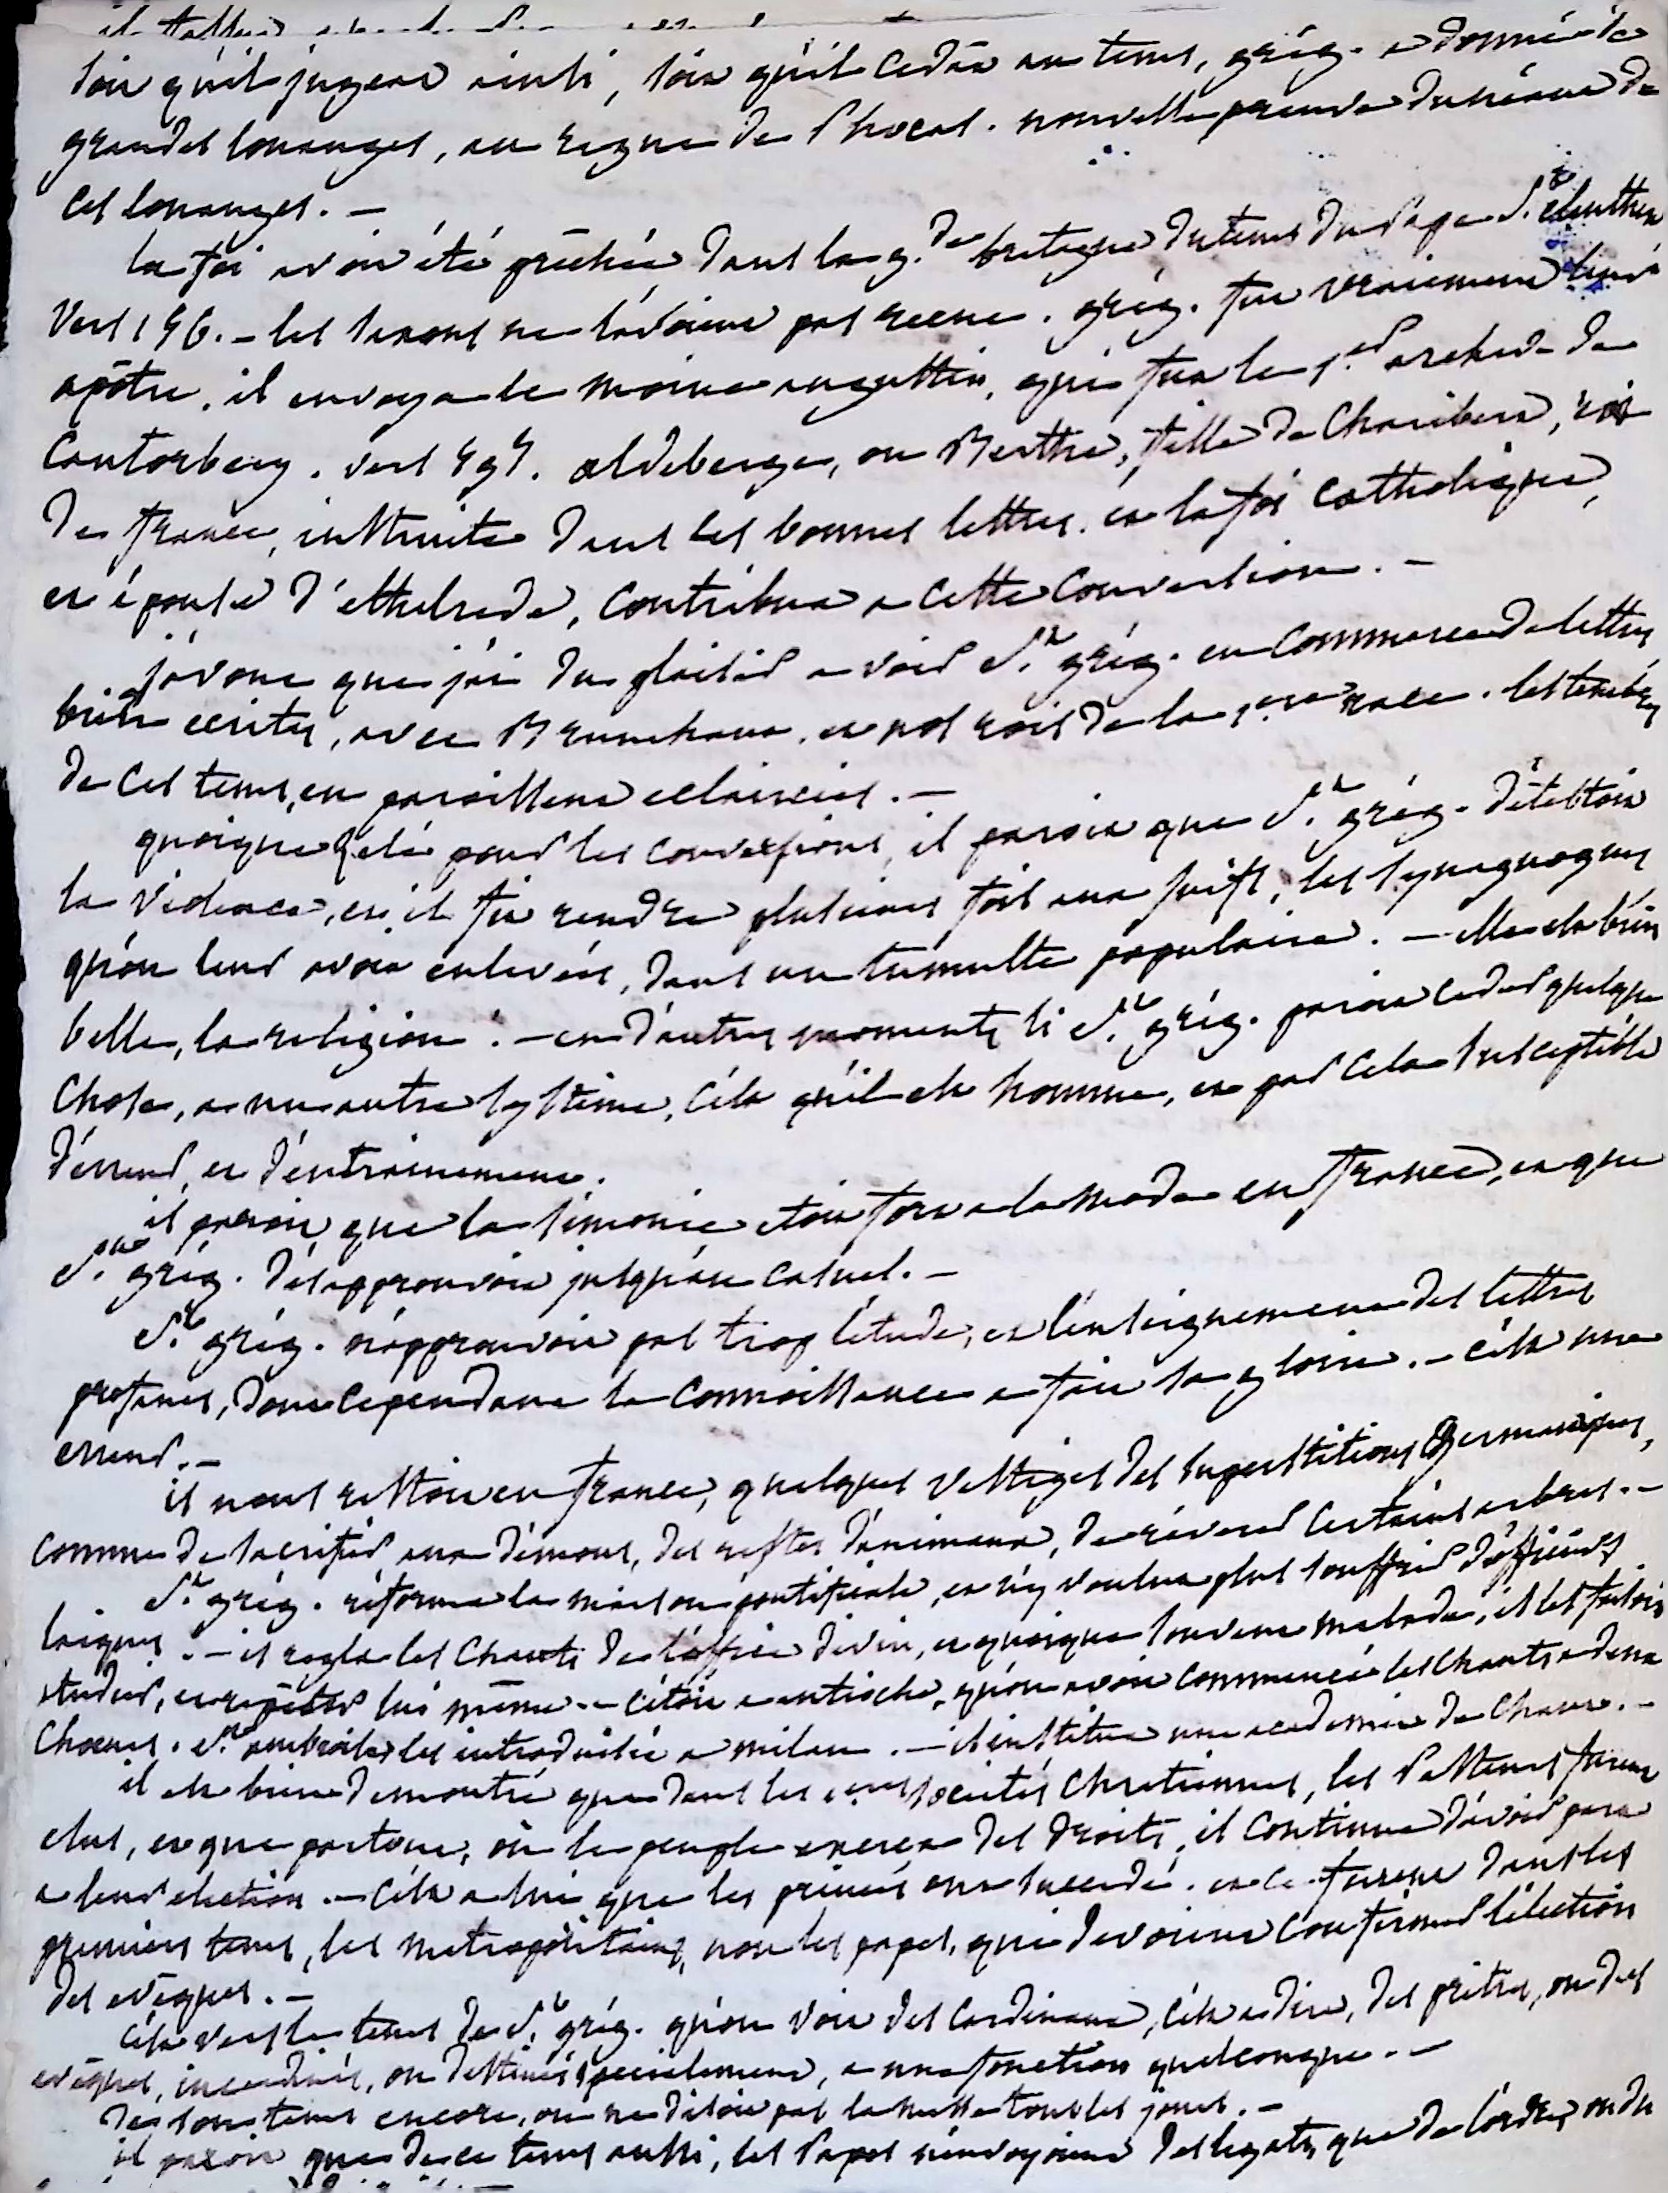 soit qu'il jugeat ainsi, soit qu'il cedât au tems, grég. a donné de
grandes louanges, au regne de Phocas. nouvelle preuve du néant de
ces louanges. —
la foi avoit été prêchée dans la g.de bretagne du tems du Pape S. éleuthere
vers 176. — les saxons ne l'avoient pas recue. grég. fut vraiement leur
apôtre. il envoya le moine augustin, qui fut le 1.er archev. de
Cantorbery. vers 597. aldeberge, ou Berthe, fille de Charibert, roi
de france, instruite dans les bonnes lettres. et la foi catholique,
et épouse d'ethelrede, contribua a cette conversion. —
j'avoue que j'ai du plaisir a voir S.t grég. en commerce de lettres
bien ecrites, avec Brunehaut, et nos rois de la 1.ere race. les tenèbres
de ces tems, en paroissent eclaircies. —
quoique zelé pour les conversions, il paroit que S.t grég. détestoit
la violence, et il fit rendre plusieurs fois aux juifs, les synagogues
qu'on leur avoit enlevées, dans un tumulte populaire. — elle est bien
belle, la religion! — en d'autres moments si S.t grég. paroit ceder quelque
chose, a un autre systême, c'est qu'il est homme, et par cela susceptible
d'erreur, et d'entrainement.
il paroit que la simonie etoit fort a la mode en france, et que
S.t grég. désapprouvoit jusqu'au casuel. —
S.t grég. n'approuvoit pas trop l'étude, et l'enseignement des lettres
profanes, dont cependant la connoissance a fait sa gloire. — c'est une
erreur. —
il nous restoit en france, quelques vestiges des superstitions germaniques,
comme de sacrifier aux démons, des restes d'animaux, de réverer certains arbres. —
S.t grég. réforma la maison pontificale, et n'y voulut plus souffrir d'officiers
laiques. — il regla les chants de l'office divin, et quoique souvent malade, il les faisoit
etudier, et repéter lui même. — c'étoit a antioche, qu'on avoit commencé les chants a deux
choeurs. S.t ambroise les introduisit a milan. — il institua une academie de chant. —
il est bien demontré que dans les 1.eres societés chretiennes, les Pasteurs furent
elus, et que partout, où le peuple exerca des droits, il continua d'avoir part
a leur election. — c'est a lui que les princes ont succedé. et ce furent dans les
premiers tems, les metropolitains, non les papes, qui devoient confirmer l'élection
des evêques. —
c'est vers le tems de S.t grég. qu'on voit des Cardinaux, c'est a dire, des prêtres, ou des
evêques, incardinés, ou destinés specialement, a une fonction quelconque. —
de son tems encore, on ne disoit pas la messe tous les jours. —
il paroit que de ce tems aussi, les Papes n'envoyoient des legats, que de l'ordre, ou du